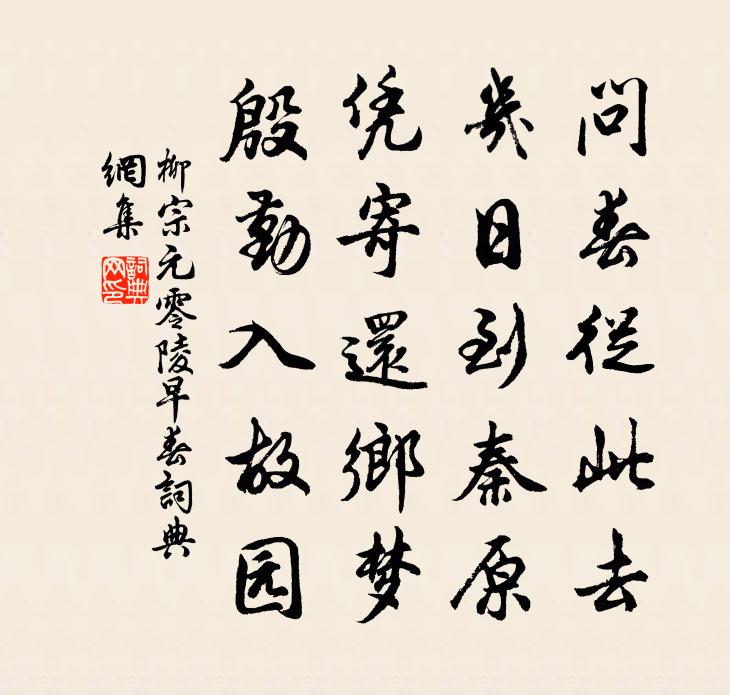 问春從此去
幾日到秦原
凭寄還鄉梦
殷勤入故园
柳宗元零陵早春詞典
網集
詞典
网印